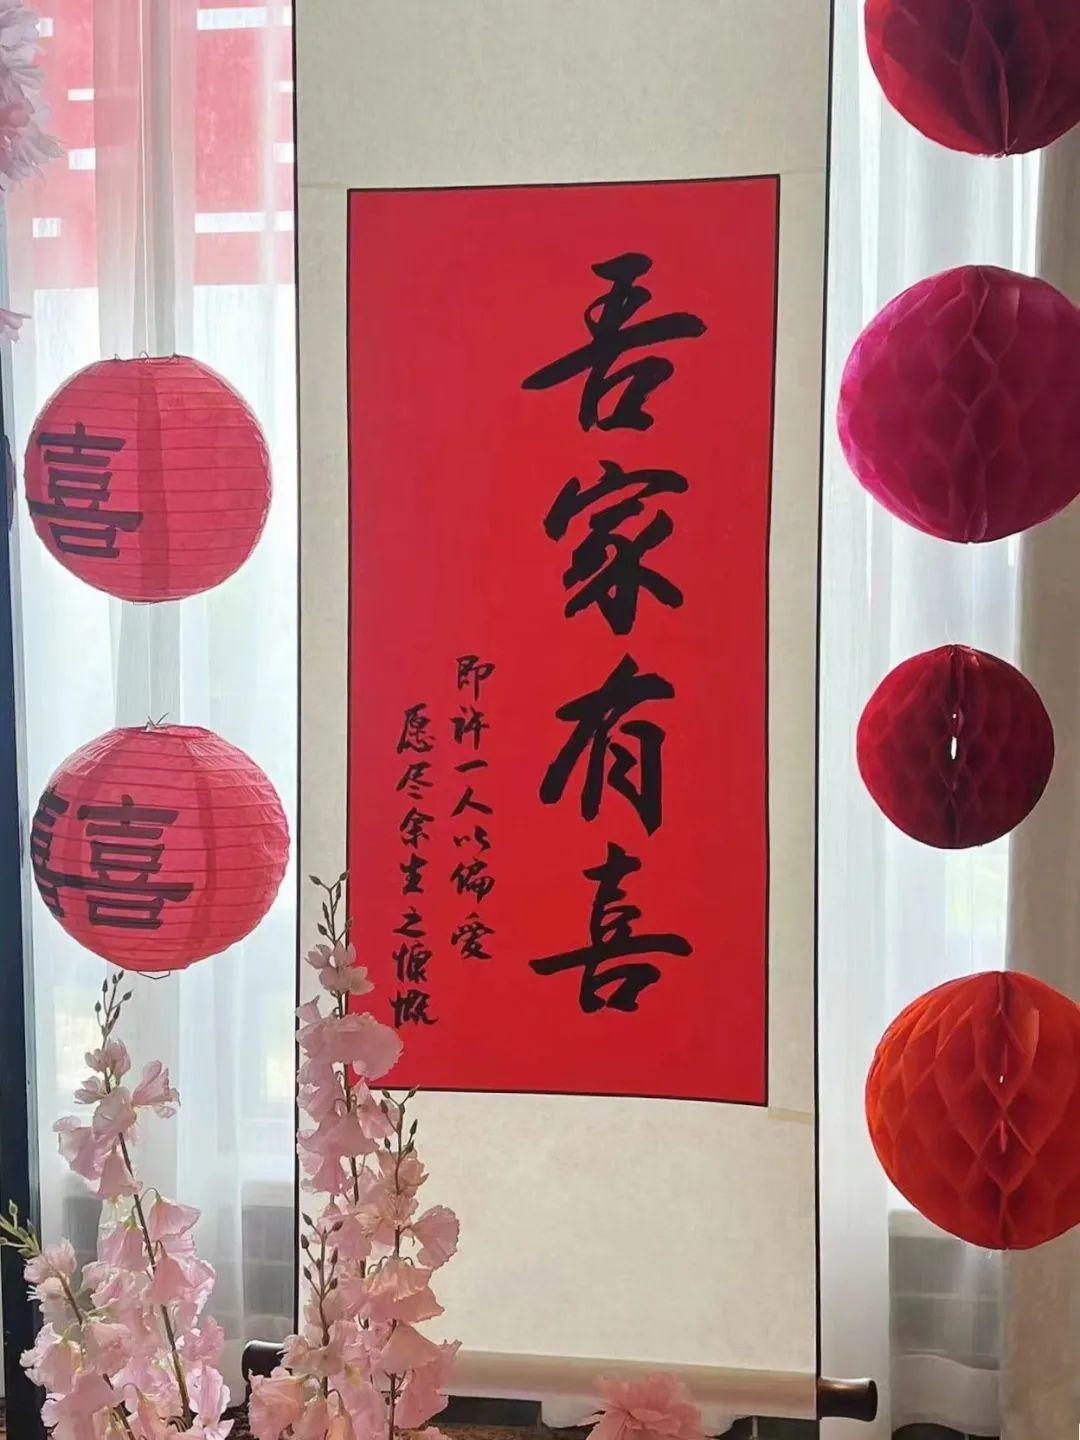 吾家有喜
即许一人以偏爱
愿尽余生之慷慨
喜
囍